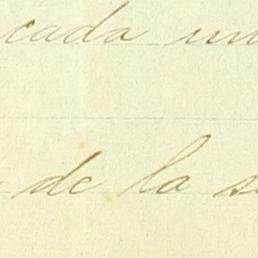 cada un
de la s